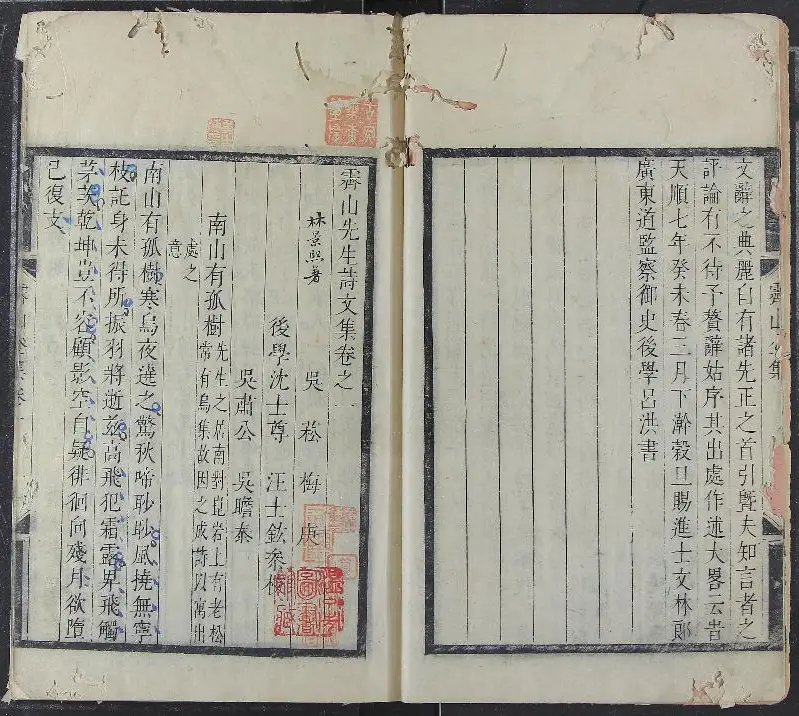 文辭之典麗自有諸先正之首引曁夫知言者之
評論有不待予贅辭姑序其出處作述大畧云旹
天順七年癸未春二月下澣穀旦賜進士文林郎
廣東道監察御史後學呂洪書
霽山先生詩文集卷之一
林景熙著
吳菘 梅庚
後學沈士尊 汪士鋐叅校
吳肅公 吳瞻泰
南山有孤樹 先生之居南對崑岩上有老松
常有烏集故因之成詩以寓出
處之
意
南山有孤樹寒烏夜遶之驚秋啼眇眇風撓無寧
枝託身未得所振羽將逝兹高飛犯霜露卑飛觸
茅茨乾坤豈不容顧影空自疑徘徊向殘月欲墮
已復支